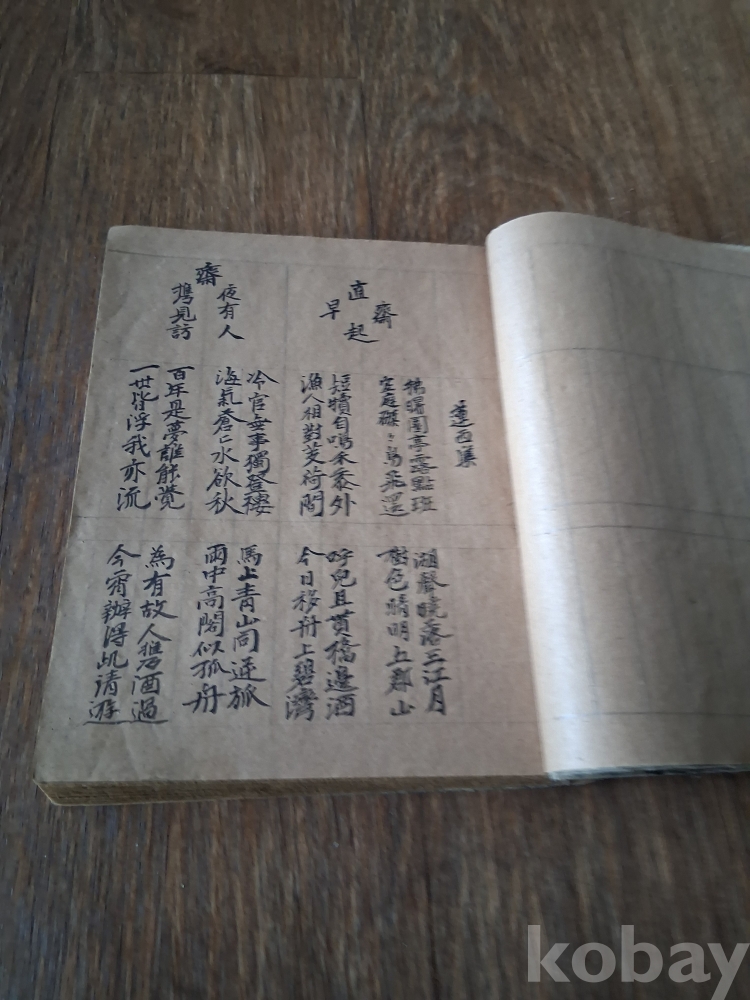 蓮西集
直齋早起
拂曙園亭露點斑
空庭磔〻鳥飛還
湖聲曉落三江月
樹色晴明上郡山
短犢自鳴禾黍外
漁人相對芰荷間
呼兒且貰橋邊酒
今日移舟上碧灣
齋夜有人携見訪
冷官無事獨登樓
海氣蒼〻水欲秋
馬上青山同逆旅
雨中高閣似孤舟
百年是夢誰能覺
一世皆浮我亦流
為有故人携酒過
今宵辦得此清遊
kobay